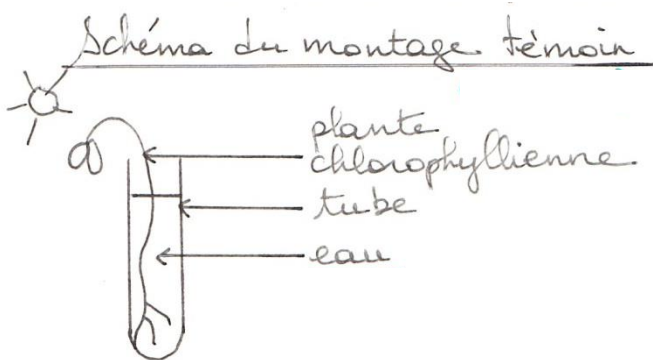 Schéma du montage témoin
plante
chlorophyllienne
tube
eau